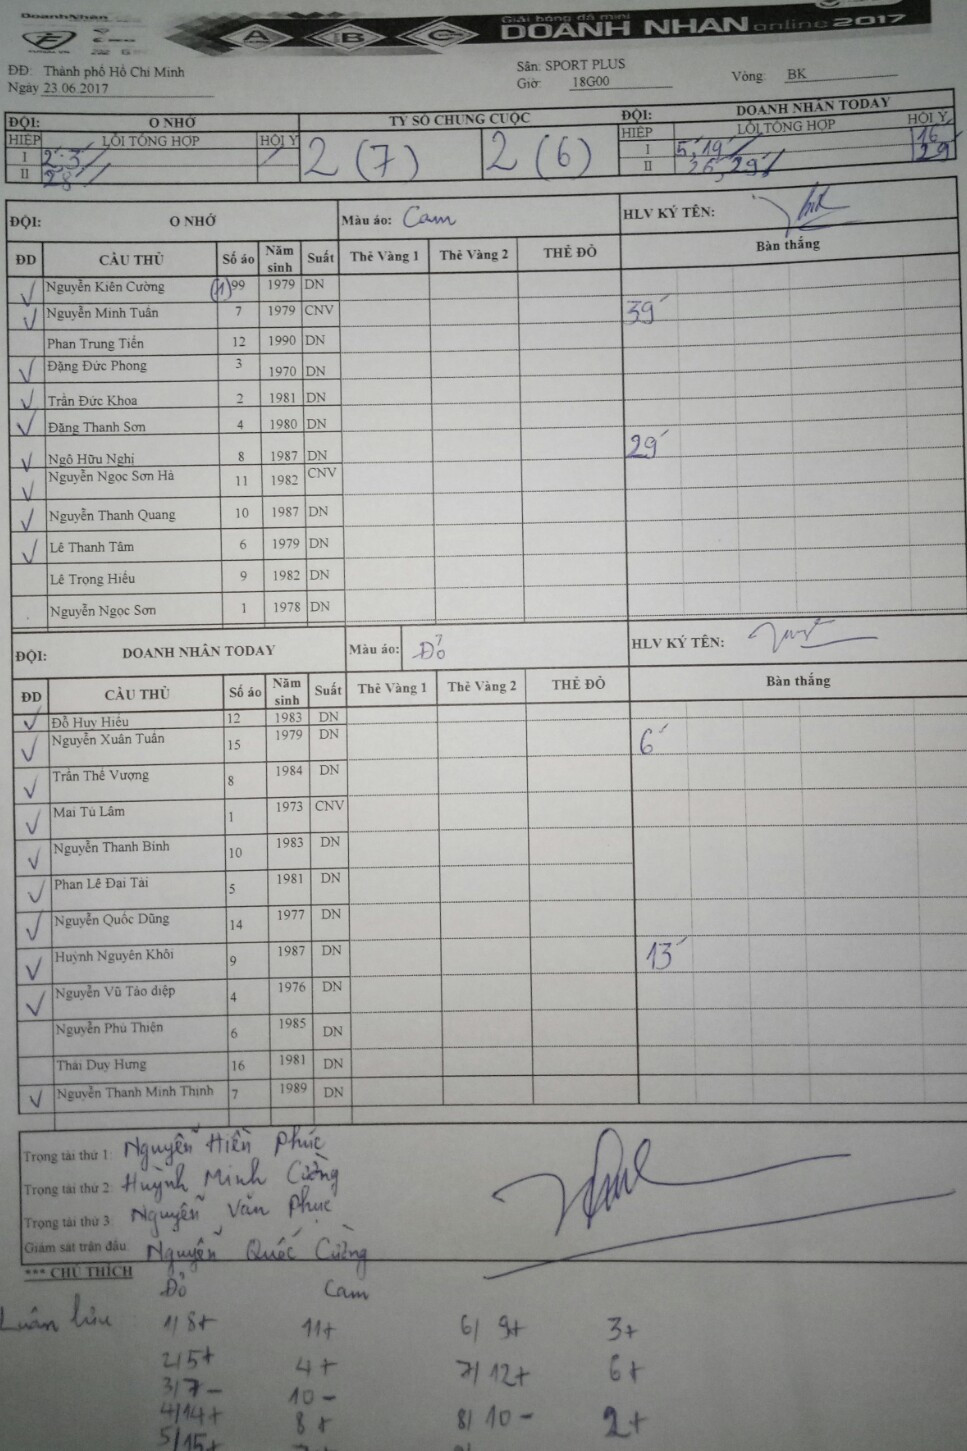 DoanhNhan
A B C
Giải bóng đá mini
DOANH NHAN online 2017
ĐĐ: Thành phố Hồ Chí Minh
Sân: SPORT PLUS
Ngày 23.06.2017
Giờ: 18G00
Vòng: BK
ĐỘI: O NHỚ
TỶ SỐ CHUNG CUỘC
ĐỘI: DOANH NHÂN TODAY
HIỆP LỖI TỔNG HỢP HỘI Ý
HIỆP LỖI TỔNG HỢP HỘI Ý
I 2' 3'
2 (7) 2 (6)
I 5', 19' 16
II 28'
II 26', 29' 29
ĐỘI: O NHỚ Màu áo: Cam HLV KÝ TÊN:
ĐD CẦU THỦ Số áo Năm sinh Suất Thẻ Vàng 1 Thẻ Vàng 2 THẺ ĐỎ Bàn thắng
Nguyễn Kiên Cường (1) 99 1979 DN
Nguyễn Minh Tuấn 7 1979 CNV 39'
Phan Trung Tiến 12 1990 DN
Đặng Đức Phong 3 1970 DN
Trần Đức Khoa 2 1981 DN
Đặng Thanh Sơn 4 1980 DN
Ngô Hữu Nghị 8 1987 DN 29'
Nguyễn Ngọc Sơn Hà 11 1982 CNV
Nguyễn Thanh Quang 10 1987 DN
Lê Thanh Tâm 6 1979 DN
Lê Trọng Hiếu 9 1982 DN
Nguyễn Ngọc Sơn 1 1978 DN
ĐỘI: DOANH NHÂN TODAY Màu áo: Đỏ HLV KÝ TÊN:
ĐD CẦU THỦ Số áo Năm sinh Suất Thẻ Vàng 1 Thẻ Vàng 2 THẺ ĐỎ Bàn thắng
Đỗ Huy Hiếu 12 1983 DN
Nguyễn Xuân Tuấn 15 1979 DN 6'
Trần Thế Vượng 8 1984 DN
Mai Tú Lâm 1 1973 CNV
Nguyễn Thanh Bình 10 1983 DN
Phan Lê Đại Tài 5 1981 DN
Nguyễn Quốc Dũng 14 1977 DN
Huỳnh Nguyên Khôi 9 1987 DN 13'
Nguyễn Vũ Táo điệp 4 1976 DN
Nguyễn Phú Thiện 6 1985 DN
Thái Duy Hưng 16 1981 DN
Nguyễn Thanh Minh Thịnh 7 1989 DN
Trọng tài thứ 1: Nguyễn Hiền Phúc
Trọng tài thứ 2: Huỳnh Minh Cường
Trọng tài thứ 3: Nguyễn Văn Phục
Giám sát trận đấu: Nguyễn Quốc Cường
*** CHÚ THÍCH
Đỏ Cam
Luân lưu 1/ 8+ 11+ 6/ 9+ 3+
2/ 5+ 4+ 7/ 12+ 6+
3/ 7- 10-
4/ 14+ 8+ 8/ 10- 2+
5/ 15+